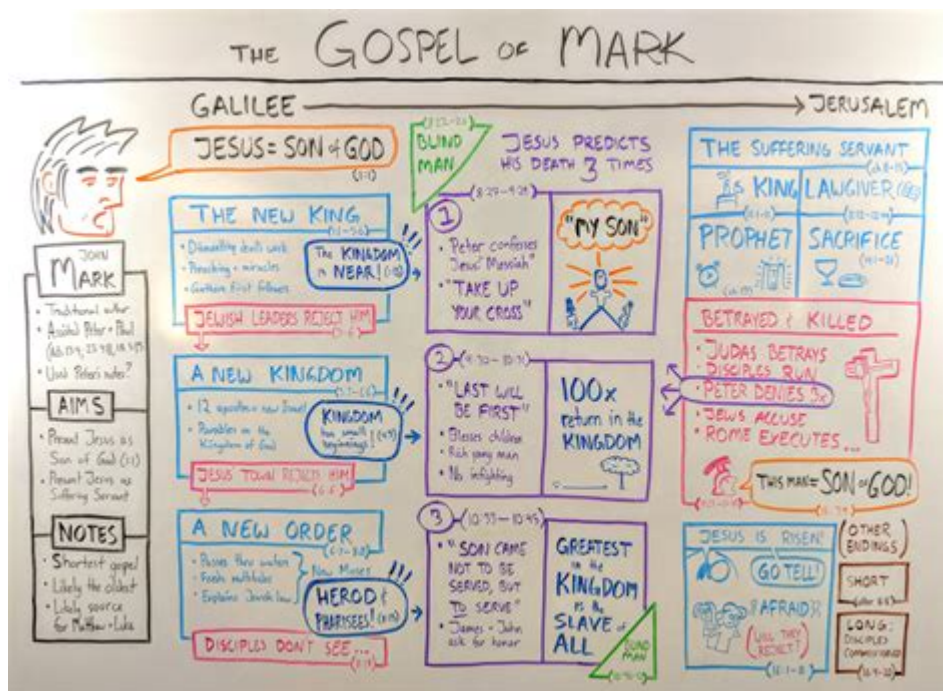 THE GOSPEL OF MARK
GALILEE
JERUSALEM
JESUS = SON of GOD
(1:1)
JOHN
MARK
• Traditional author
• Used Peter's notes?
AIMS
• Present Jesus as
Son of God (1:1)
• Present Jesus as
Suffering Servant
NOTES
• Shortest gospel
• Likely the oldest
• Likely source
for Matthew + Luke
THE NEW KING
• Preaching + miracles
The KINGDOM
is NEAR!
JEWISH LEADERS REJECT HIM
A NEW KINGDOM
• 12 apostles = new Israel
• Parables on the
Kingdom of God
KINGDOM
has small
beginnings!
JESUS' TOWN REJECTS HIM
A NEW ORDER
• Passes thru waters
• Feeds multitudes
• Explains Jewish law
New Moses
HEROD &
PHARISEES!
DISCIPLES DON'T SEE...
BLIND
MAN
JESUS PREDICTS
HIS DEATH 3 TIMES
1
• Peter confesses
Jesus "Messiah"
• "TAKE UP
YOUR CROSS"
"MY SON"
2
(9:30-10:31)
• "LAST WILL
BE FIRST"
• Blesses children
• Rich young man
• No infighting
100x
return in the
KINGDOM
3
• "SON CAME
NOT TO BE
SERVED, BUT
TO SERVE"
• James + John
ask for honor
GREATEST
in the
KINGDOM
is the
SLAVE of
ALL
BLIND
MAN
THE SUFFERING SERVANT
KING
LAWGIVER
PROPHET
SACRIFICE
BETRAYED & KILLED
• JUDAS BETRAYS
• DISCIPLES RUN
• PETER DENIES 3x
• JEWS ACCUSE
• ROME EXECUTES...
THIS MAN = SON of GOD!
JESUS IS RISEN!
GO TELL!
AFRAID
(WILL THEY
REJECT?)
(OTHER
ENDINGS)
SHORT
LONG:
DISCIPLES
COMMISSIONED